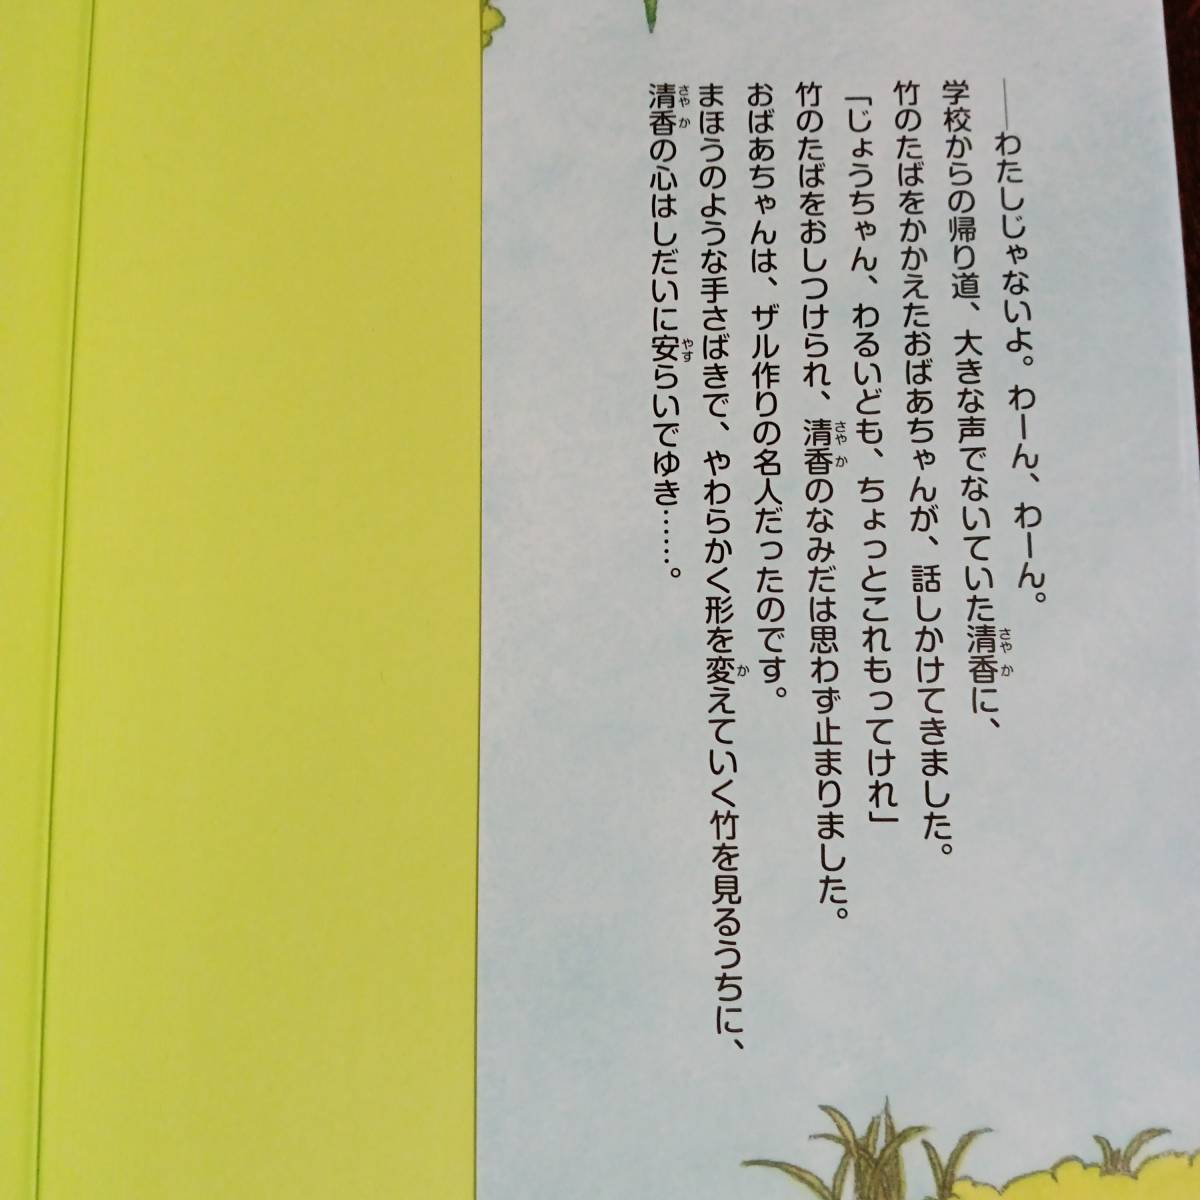 ――わたしじゃないよ。わーん、わーん。
学校からの帰り道、大きな声でないていた清香に、
竹のたばをかかえたおばあちゃんが、話しかけてきました。
「じょうちゃん、わるいども、ちょっとこれもってけれ」
竹のたばをおしつけられ、清香のなみだは思わず止まりました。
おばあちゃんは、ザル作りの名人だったのです。
まほうのような手さばきで、やわらかく形を変えていく竹を見るうちに、
清香の心はしだいに安らいでゆき……。